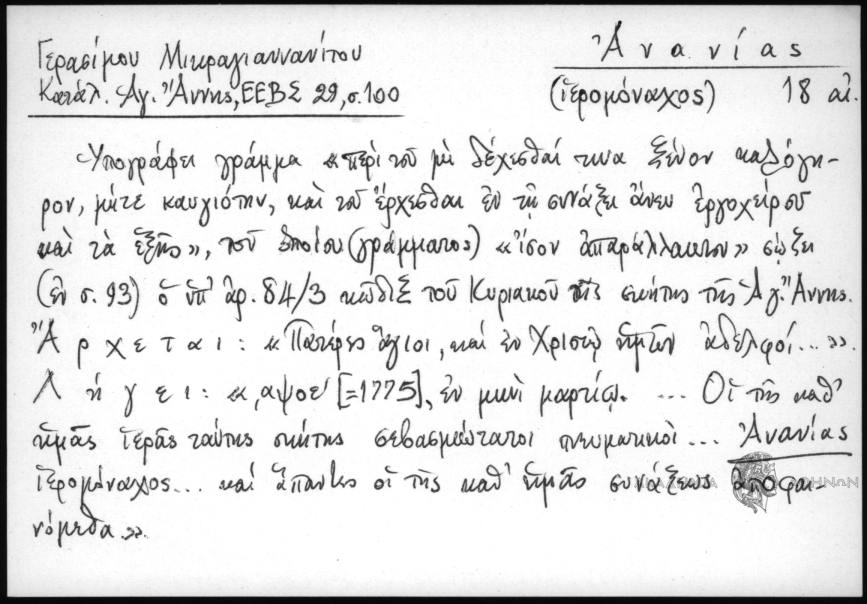 Γερασίμου Μικραγιαννανίτου
Κατάλ. Ἁγ. Ἄννης, ΕΕΒΣ 29, σ. 100
Ἀνανίας
(ἱερομόναχος) 18 αἰ.
Ὑπογράφει γράμμα «περὶ τοῦ μὴ δέχεσθαί τινα ξένον καλόγη-
ρον, μήτε καυγιότην, καὶ τοῦ ἔρχεσθαι ἐν τῇ συνάξει ἄνευ ἐργοχείρου
καὶ τὰ ἑξῆς», τοῦ ὁποίου (γράμματος) «ἴσον ἀπαράλλακτον» σῴζει
(ἐν σ. 93) ὁ ὑπ' ἀρ. 84/3 κῶδιξ τοῦ Κυριακοῦ τῆς σκήτης τῆς Ἁγ. Ἄννης.
Ἄρχεται: «Πατέρες ἅγιοι, καὶ ἐν Χριστῷ ἡμῶν ἀδελφοί...».
Λήγει: «͵αψοε' [=1775], ἐν μηνὶ μαρτίῳ. ... Οἱ τῆς καθ'
ἡμᾶς ἱερᾶς ταύτης σκήτης σεβασμιώτατοι πνευματικοὶ... Ἀνανίας
ἱερομόναχος... καὶ ἅπαντες οἱ τῆς καθ' ἡμᾶς συνάξεως ἀποφαι-
νόμεθα».
ΑΚΑΔΗΜΙΑ ΑΘΗΝΩΝ